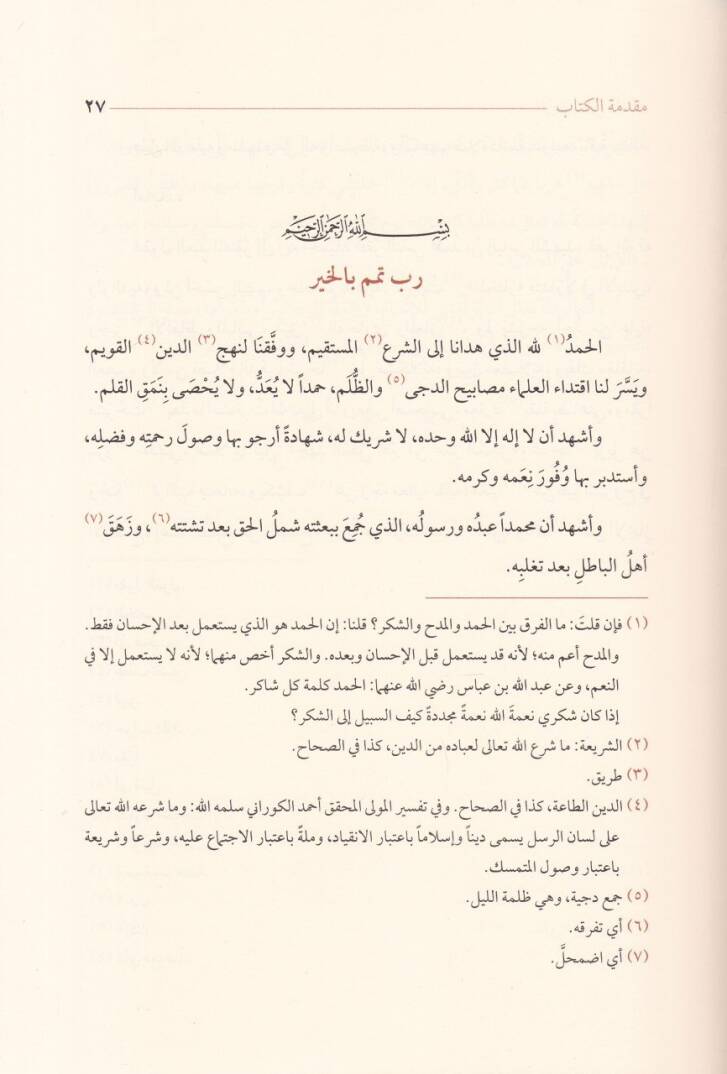 مقدمة الكتاب ٢٧
بِسْمِ اللهِ الرَّحْمٰنِ الرَّحِيْمِ
رب تمم بالخير
الحمدُ(١) لله الذي هدانا إلى الشرع(٢) المستقيم، ووفَّقنَا لنهج(٣) الدين(٤) القويم،
ويَسَّرَ لنا اقتداء العلماء مصابيح الدجى(٥) والظُّلَم، حمداً لا يُعَدُّ، ولا يُحْصَى بِنَمَقِ القلم.
وأشهد أن لا إله إلا الله وحده، لا شريك له، شهادةً أرجو بها وصولَ رحمتِه وفضلِه،
وأستدبر بها وُفُورَ نِعَمه وكرمه.
وأشهد أن محمداً عبدُه ورسولُه، الذي جُمِعَ ببعثته شملُ الحق بعد تشتته(٦)، وزَهَقَ(٧)
أهلُ الباطلِ بعد تغلبِه.
(١) فإن قلتَ: ما الفرق بين الحمد والمدح والشكر؟ قلنا: إن الحمد هو الذي يستعمل بعد الإحسان فقط.
والمدح أعم منه؛ لأنه قد يستعمل قبل الإحسان وبعده. والشكر أخص منهما؛ لأنه لا يستعمل إلا في
النعم، وعن عبد الله بن عباس رضي الله عنهما: الحمد كلمة كل شاكر.
إذا كان شكري نعمةَ الله نعمةً مجددةً كيف السبيل إلى الشكر؟
(٢) الشريعة: ما شرع الله تعالى لعباده من الدين، كذا في الصحاح.
(٣) طريق.
(٤) الدين الطاعة، كذا في الصحاح. وفي تفسير المولى المحقق أحمد الكوراني سلمه الله: وما شرعه الله تعالى
على لسان الرسل يسمى ديناً وإسلاماً باعتبار الانقياد، وملةً باعتبار الاجتماع عليه، وشرعاً وشريعة
باعتبار وصول المتمسك.
(٥) جمع دجية، وهي ظلمة الليل.
(٦) أي تفرقه.
(٧) أي اضمحلَّ.